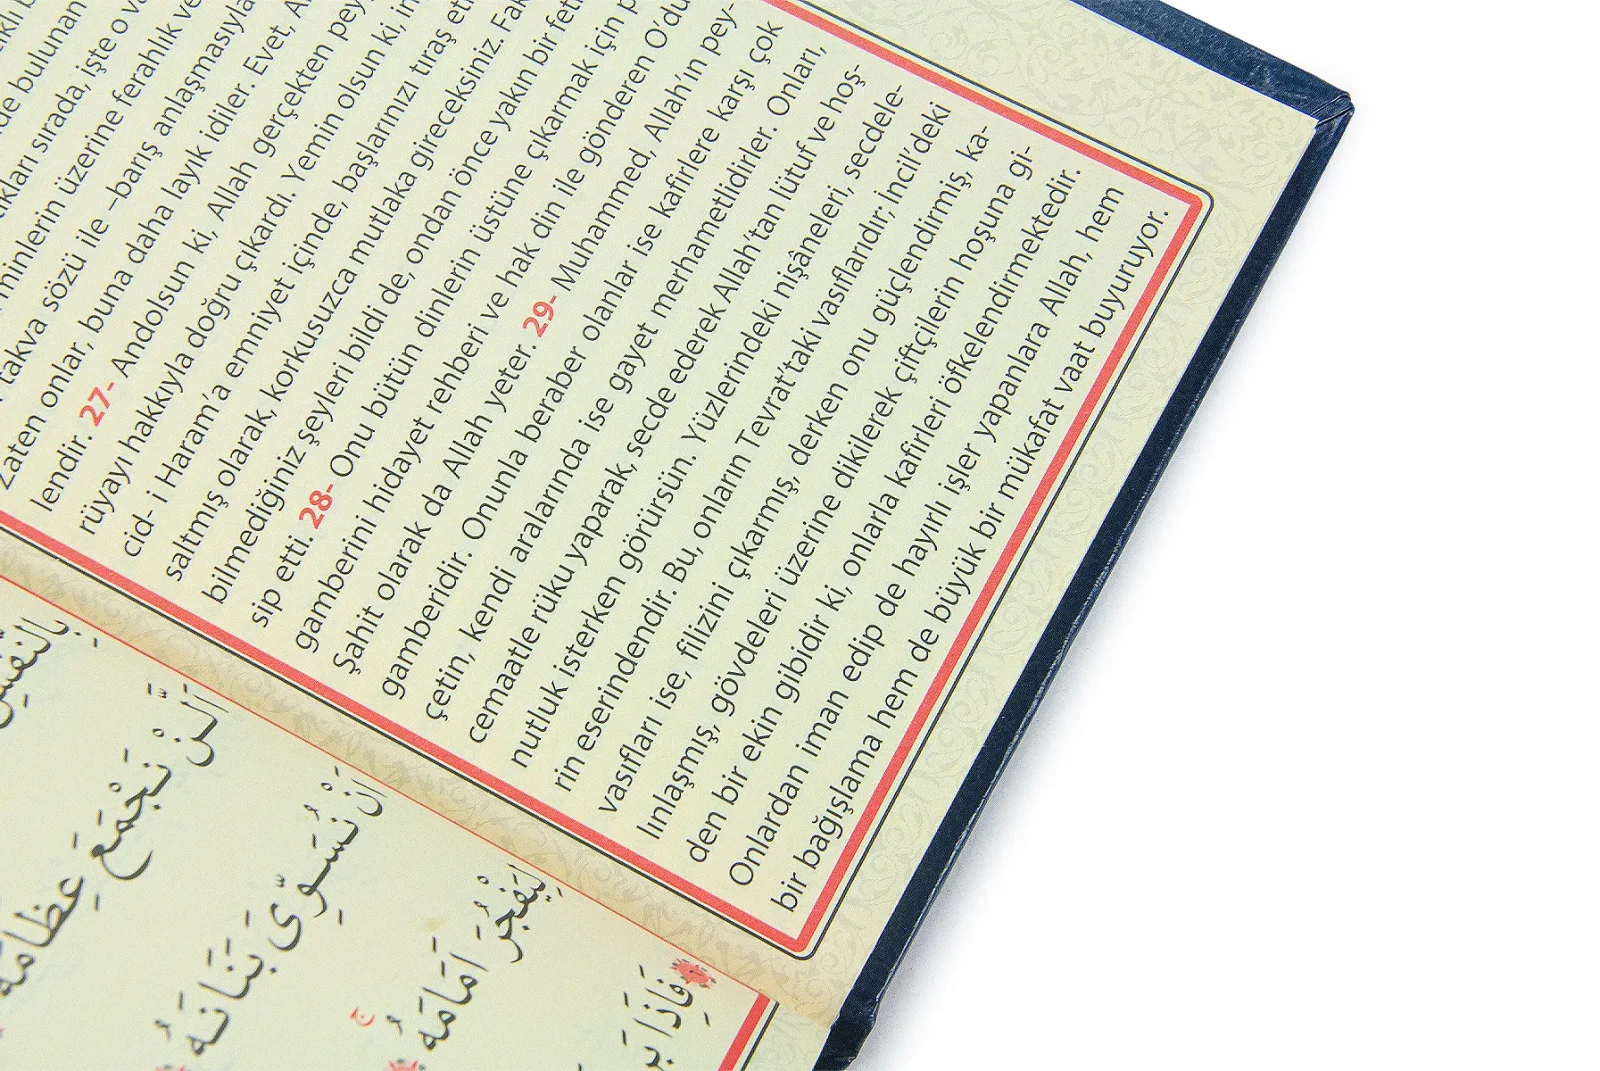 de bulunan
tıkları sırada, işte o
minlerin üzerine ferahlık ve
takva sözü ile –barış anlaşmasıyla
zaten onlar, buna daha layık idiler. Evet,
lendir. 27- Andolsun ki, Allah gerçekten pey
rüyayı hakkıyla doğru çıkardı. Yemin olsun ki,
cid- i Haram’a emniyet içinde, başlarınızı tıraş
saltmış olarak, korkusuzca mutlaka gireceksiniz.
bilmediğiniz şeyleri bildi de, ondan önce yakın bir
sip etti. 28- Onu bütün dinlerin üstüne çıkarmak için
gamberini hidayet rehberi ve hak din ile gönderen O’du
Şahit olarak da Allah yeter. 29- Muhammed, Allah’ın pey-
gamberidir. Onunla beraber olanlar ise kafirlere karşı çok
çetin, kendi aralarında ise gayet merhametlidirler. Onları,
cemaatle rüku yaparak, secde ederek Allah’tan lütuf ve hoş-
nutluk isterken görürsün. Yüzlerindeki nişâneleri, secdele-
rin eserindendir. Bu, onların Tevrat’taki vasıflarıdır; İncil’deki
vasıfları ise, filizini çıkarmış, derken onu güçlendirmiş, ka-
lınlaşmış, gövdeleri üzerine dikilerek çiftçilerin hoşuna gi-
den bir ekin gibidir ki, onlarla kafirleri öfkelendirmektedir.
Onlardan iman edip de hayırlı işler yapanlara Allah, hem
bir bağışlama hem de büyük bir mükafat vaat buyuruyor.
اَلَّنْ نَجْمَعَ عِظَامَهُ
اَنْ نُسَوِّىَ بَنَانَهُ
لِيَفْجُرَ اَمَامَهُ
فَاِذَا